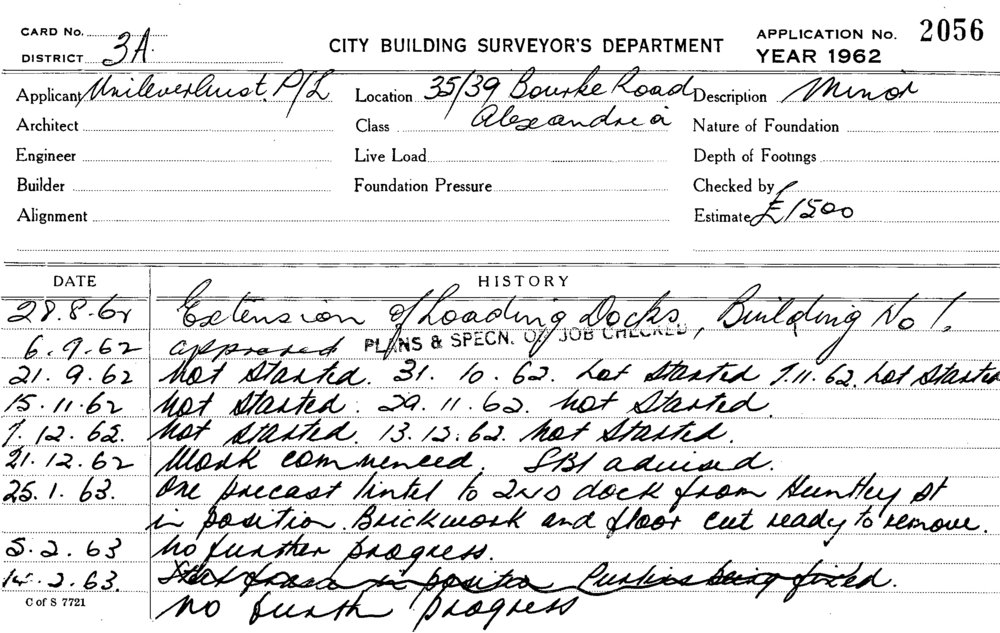 CARD No.
DISTRICT 3A
CITY BUILDING SURVEYOR'S DEPARTMENT
APPLICATION No. 2056
YEAR 1962
Applicant Unilever Aust. P/L
Location 35/39 Bourke Road
Alexandria
Description Minor
Architect
Class
Nature of Foundation
Engineer
Live Load
Depth of Footings
Builder
Foundation Pressure
Checked by
Alignment
Estimate £1500
DATE HISTORY
28.8.62 Extension of Loading Docks, Building No 1.
6.9.62 approved PLANS & SPECN. OF JOB CHECKED
21.9.62 Not Started. 31.10.62. Not Started 7.11.62. Not Started
15.11.62 Not Started. 29.11.62. Not Started.
7.12.62. Not Started. 13.12.62. Not Started.
21.12.62 Work commenced. SBI advised.
25.1.63. One precast lintel to 2nd dock from Huntley St
in position. Brickwork and floor cut ready to remove.
5.2.63 No further progress.
14.2.63. Steel frame in position Purlins being fixed.
No furth progress
C of S 7721